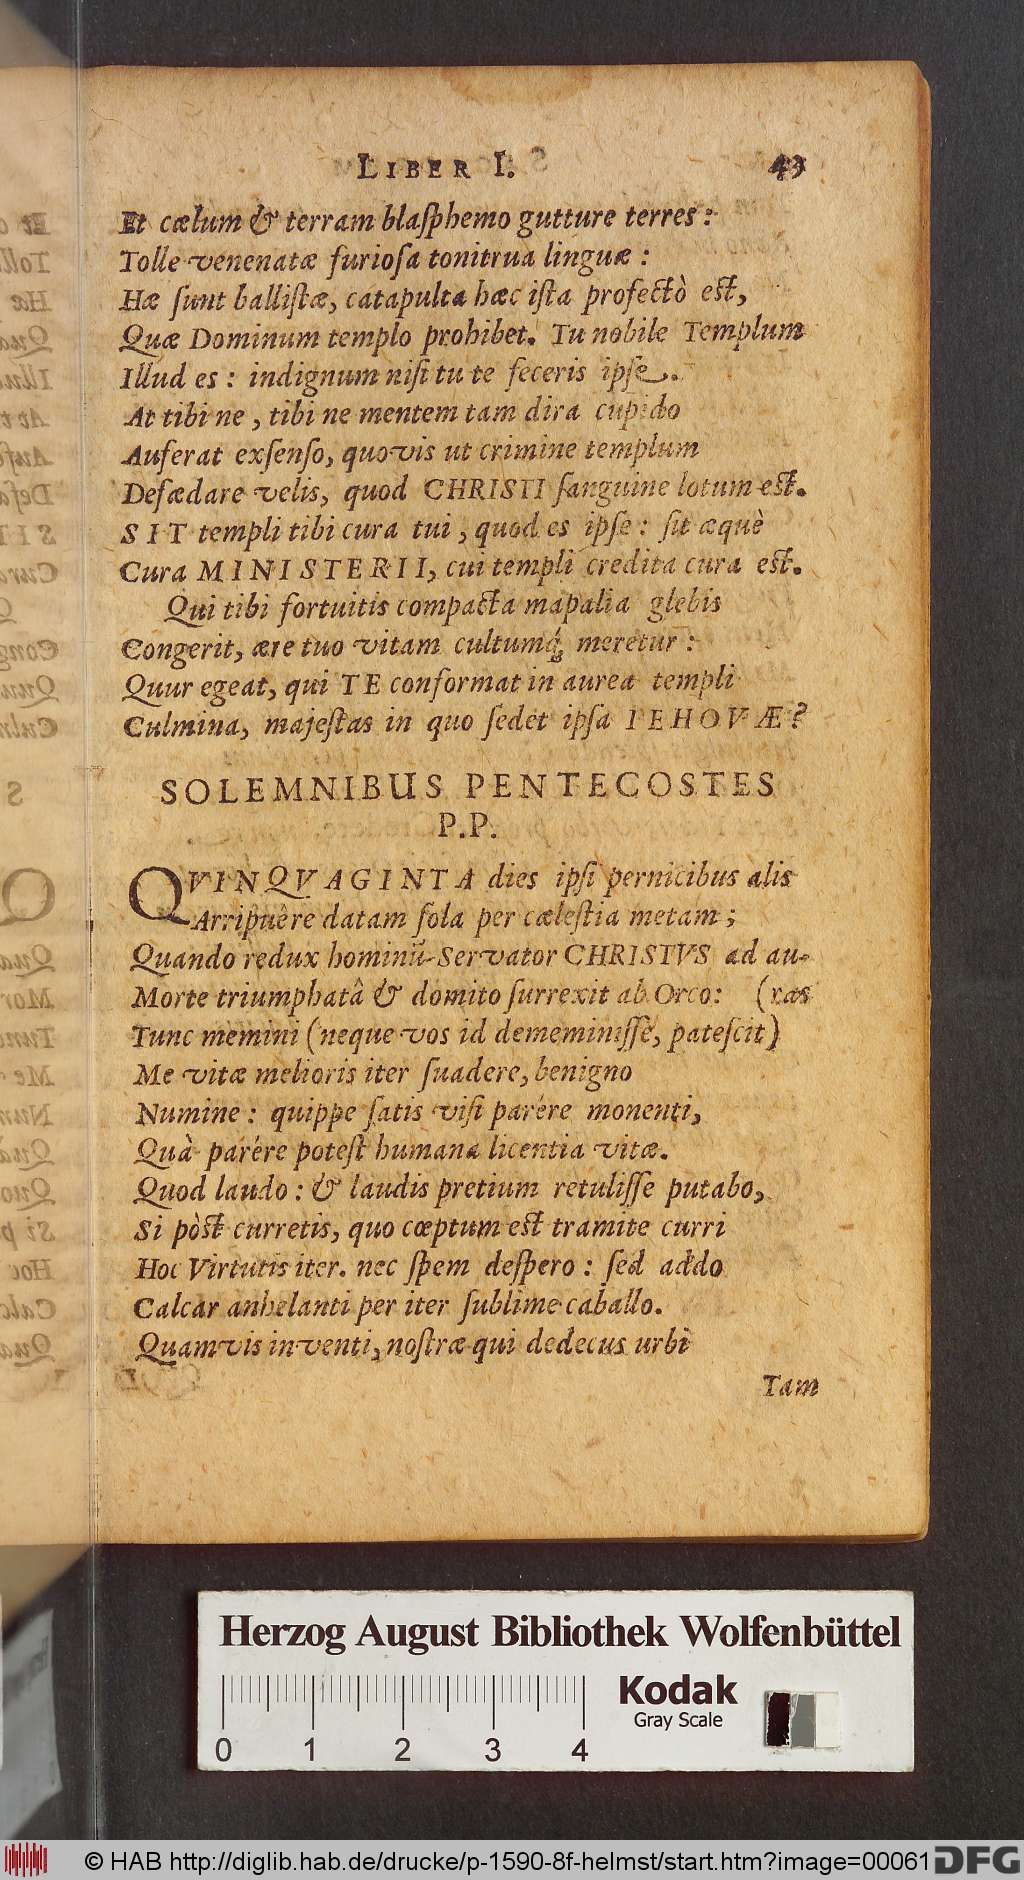 LIBER I. 43
Et cælum & terram blaſphemo gutture terres:
Tolle venenatæ furioſa tonitrua linguæ:
Hæ ſunt balliſtæ, catapulta hæc iſta profectò eſt,
Quæ Dominum templo prohibet. Tu nobile Templum
Illud es: indignum niſi tu te feceris ipſe.
At tibi ne, tibi ne mentem tam dira cupido
Auferat exſenſo, quovis ut crimine templum
Defædare velis, quod CHRISTI ſanguine lotum eſt.
SIT templi tibi cura tui, quod es ipſe: ſit æquè
Cura MINISTERII, cui templi credita cura eſt.
Qui tibi fortuitis compacta mapalia glebis
Congerit, ære tuo vitam cultumq́; meretur:
Quur egeat, qui TE conformat in aurea templi
Culmina, majeſtas in quo ſedet ipſa IEHOVÆ?
SOLEMNIBUS PENTECOSTES
P.P.
QVINQVAGINTA dies ipſi pernicibus alis
Arripuêre datam ſola per cæleſtia metam;
Quando redux hominū Servator CHRISTVS ad au-
Morte triumphatâ & domito ſurrexit ab Orco: (ras
Tunc memini (neque vos id dememiniſſe, pateſcit)
Me vitæ melioris iter ſuadere, benigno
Numine: quippe ſatis viſi parére monenti,
Quà parére poteſt humana licentia vitæ.
Quod laudo: & laudis pretium retuliſſe putabo,
Si pòſt curretis, quo cœptum eſt tramite curri
Hoc Virtutis iter. nec ſpem deſpero: ſed addo
Calcar anhelanti per iter ſublime caballo.
Quamvis inventi, noſtræ qui dedecus urbi
Tam
Herzog August Bibliothek Wolfenbüttel
Kodak
Gray Scale
0 1 2 3 4
© HAB http://diglib.hab.de/drucke/p-1590-8f-helmst/start.htm?image=00061 DFG